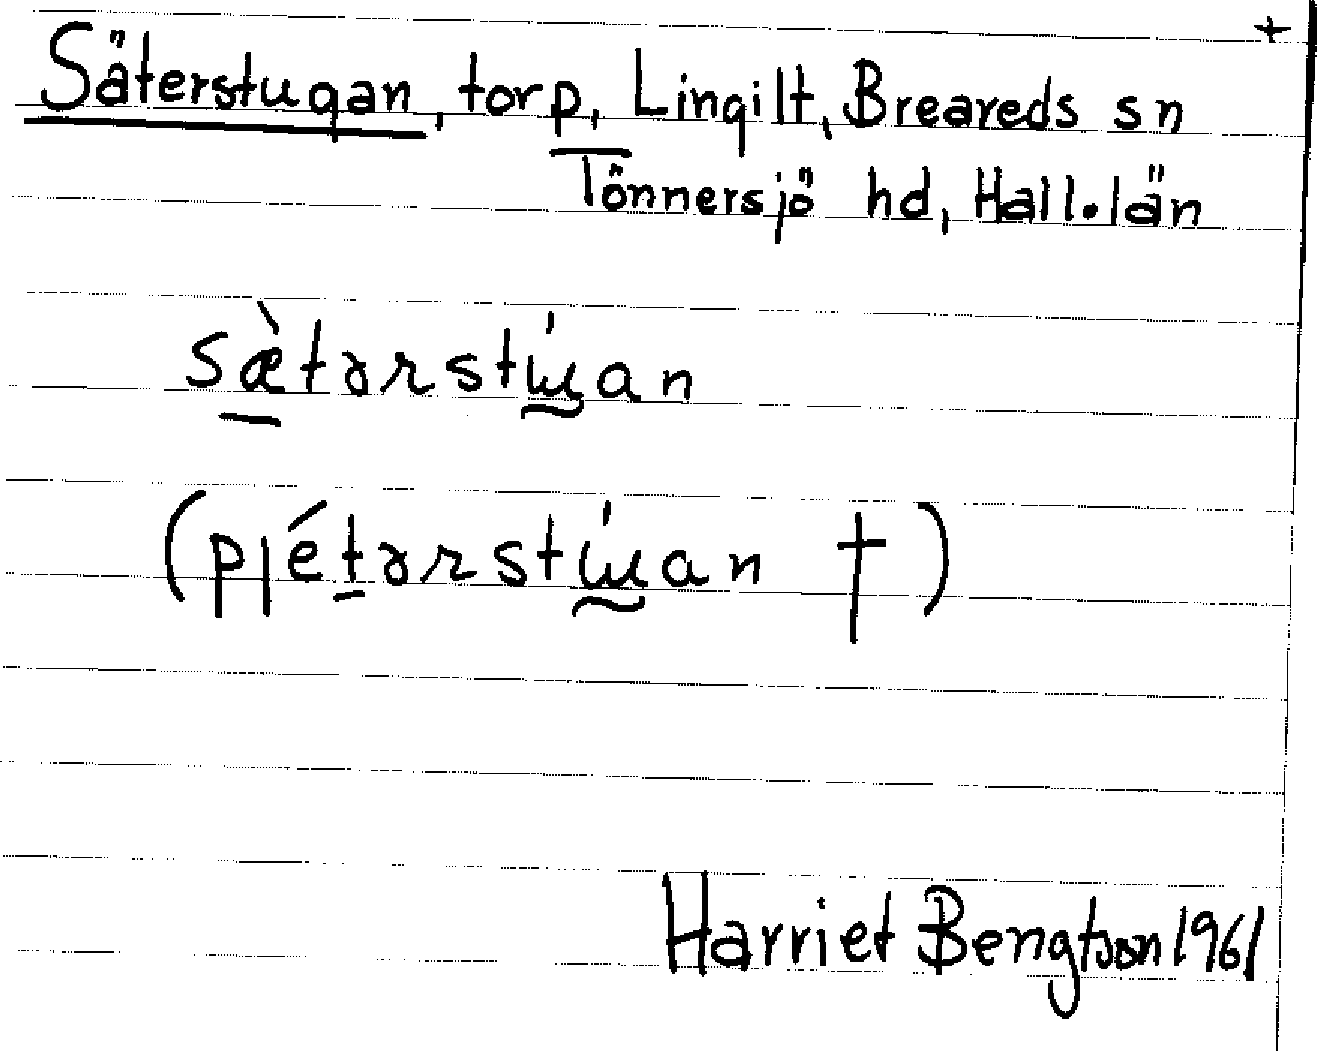 +
Säterstugan, torp, Lingilt, Breareds sn
Tönnersjö hd, Hall. län
sæ̀tərstɯ́an
(pjétərstɯ́an †)
Harriet Bengtson 1961